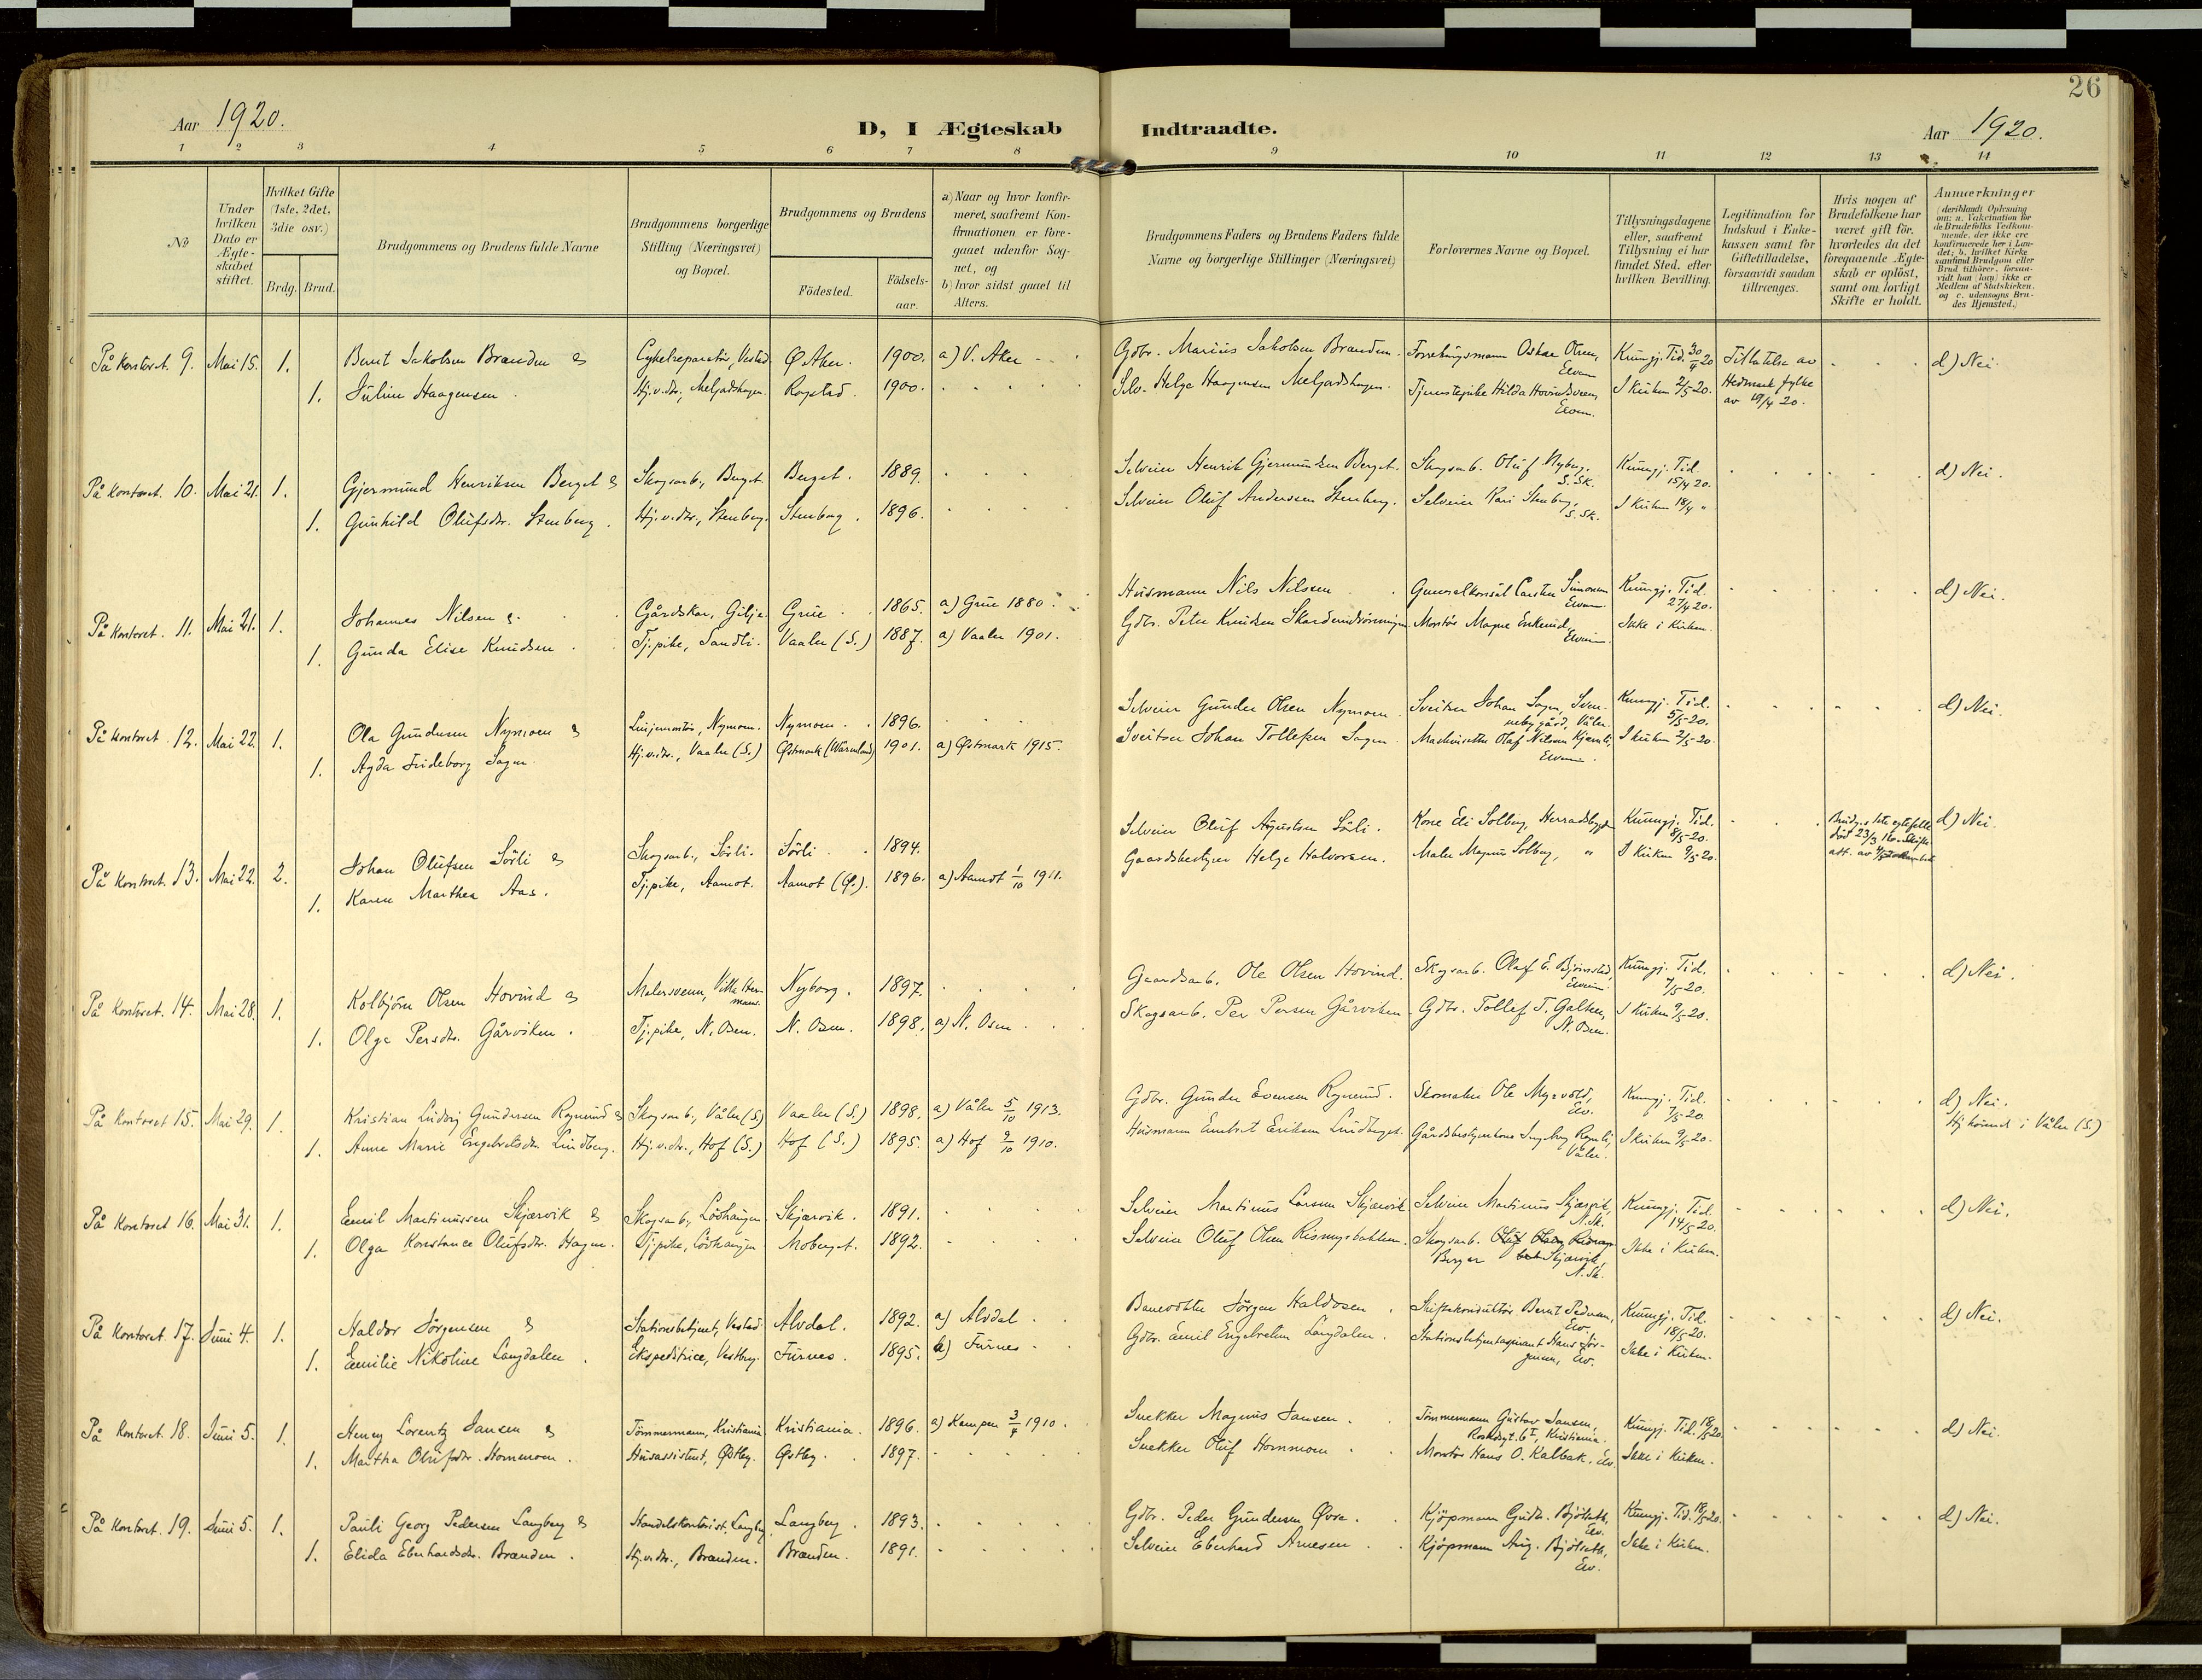 26
Aar 1920.
D, I Ægteskab Indtraadte.
Aar 1920.
1 2 3 4 5 6 7 8 9 10 11 12 13 14
No
Under hvilken Dato er Ægteskabet stiftet.
Hvilket Gifte (1ste, 2det, 3die osv.)
Brdg. Brud.
Brudgommens og Brudens fulde Navne
Brudgommens borgerlige Stilling (Næringsvei) og Bopæl.
Brudgommens og Brudens
Födested.
Födsels-aar.
a) Naar og hvor konfirmeret, saafremt Konfirmationen er foregaaet udenfor Sognet, og
b) hvor sidst gaaet til Alters.
Brudgommens Faders og Brudens Faders fulde Navne og borgerlige Stillinger (Næringsvei)
Forlovernes Navne og Bopæl.
Tillysningsdagene eller, saafremt Tillysning ei har fundet Sted, efter hvilken Bevilling.
Legitimation for Indskud i Enkekassen samt for Giftetilladelse, forsaavidt saadan tiltrænges.
Hvis nogen af Brudefolkene har været gift för, hvorledes da det foregaaende Ægteskab er oplöst, samt om lovligt Skifte er holdt.
Anmærkninger
(deriblandt Oplysning om: a. Vakcination for de Brudefolks Vedkommende, der ikke ere konfirmerede her i Landet; b. hvilket Kirkesamfund Brudgom eller Brud tilhörer, forsaavidt han (hun) ikke er Medlem af Statskirken, og c. udensogns Brudes Hjemsted.)
På kontoret. 9. Mai 15. 1. Bernt Jakobsen Brænden & Cykelreparatör, Vestad Ø. Aker. 1900. a) V. Aker Gdbr. Marius Jakobsen Brænden. Forretningsmann Oskar Olsen, Elverum Kunngj. Tid. 30/4 20 Tillatelse av d) Nei.
1. Juline Haagensen. Hj.v.dtr., Melgadshagen. Rogstad. 1900. Selv. Helge Haagensen Melgadshagen. Tjenestepike Hilda Hovind Sveen, Elverum. I kirken 2/5 20. Hedmark fylke av 19/4 20.
På kontoret. 10. Mai 21. 1. Gjermund Henriksen Berget & Skogsarb., Berget Berget. 1889. Selveier Henrik Gjermundsen Berget. Skogsarb. Oluf Nyberg. S. Sk. Kunngj. Tid. 15/4 20. d) Nei.
1. Gunhild Olufsdtr. Stenberg. Hj.v.dtr., Stenberg. Stenberg. 1896. Selveier Oluf Anderssen Stenberg. Selveier Kari Stenberg, S. Sk. I kirken 18/4 "
På kontoret. 11. Mai 21. 1. Johannes Nilsen & Gårdskar, Gilje Grue 1865. a) Grue 1880. Husmann Nils Nilssen Generalkonsul Carsten Simonsen Elverum Kunngj. Tid. 27/4 20. d) Nei.
1. Gunda Elise Knudsen. Tj.pike, Sandli. Vaaler (S.) 1887. a) Vaaler 1901. Gdbr. Peter Knudsen Montör Magne Enkerud, Elverum Ikke i kirken.
På kontoret. 12. Mai 22. 1. Ola Gundersen Nymoen & Linjemontör, Nymoen. Nymoen. 1896. Selveier Gunder Olsen Nymoen Sveitser Johan Sagen, Svenneby gård, Våler. Kunngj. Tid. 5/5-20. d) Nei.
1. Agda Frideborg Sagen Hj.v.dtr., Vaaler (S.) Østmark (Värmland) 1901. a) Østmark 1915. Sveitser Johan Tollefsen Sagen Maskinsetter Olaf Nilssen Kjernli, Elverum. I kirken 2/5-20.
På kontoret. 13. Mai 22. 2. Johan Olufsen Sörli & Skogsarb., Sörli. Sörli. 1894. Selveier Oluf Agustsen Sörli. Kone Eli Solberg, Herradsbygden Kunngj. Tid. 8/5-20. Brudg.s 1ste egtefelle död 23/3 16. Skifteatt. av d) Nei.
1. Karen Marthea Aas. Tj.pike, Aamot. Aamot (Ø.). 1896. a) Aamot 1/10 1911. Gaardsbestyrer Helge Halvorsen. Maler Magnus Solberg, " I kirken 9/5-20.
På kontoret. 14. Mai 28. 1. Kolbjörn Olsen Hovind & Malersvenn, Villa Hermans. Nyborg. 1897. Gaardsarb. Ole Olsen Hovind. Skogsarb. Olaf E. Björnstad, Elverum Kunngj. Tid. 7/5-20. d) Nei.
1. Olga Persdtr. Gårviken. Tj.pike, N. Osen. N. Osen. 1898. a) N. Osen Skogsarb. Per Persen Gårviken Gdbr. Tollef T. Galten, N. Osen. I kirken 9/5-20.
På kontoret 15. Mai 29. 1. Kristian Ludvig Gundersen Rogneriud & Skogsarb., Våler (S) Vaaler (S.) 1898. a) Våler 5/10 1913. Gdbr. Gunder Evensen Rognerud. Skomaker Ole Myrvold, Elv. Kunngj. Tid. 7/5-20. d) Nei.
Hjhörende i Våler (S.)
1. Anne Marie Engebretsdtr. Lindberg. Hj.v.dtr., Hof (S.) Hof (S.) 1895. a) Hof 9/10 1910. Husmann Embret Eriksen Lindberget. Gårdsbestyrerkone Ingeborg Rognli, Våler. I kirken 9/5-20.
På kontoret 16. Mai 31. 1. Emil Martinussen Skjærvik & Skogsarb., Lövhaugen Skjærvik. 1891. Selveier Martinus Larsen Skjærvik Selveier Martinus Skjærvik, N. Sk. Kunngj. Tid. 14/5-20. d) Nei.
1. Olga Konstance Olufsdtr. Hagen. Tj.pike, Lövhaugen. Moberget. 1892. Selveier Oluf Olsen Rismysbakken. Skogsarb. Berger Skjærvik, N. Sk. Ikke i kirken.
På kontoret 17. Juni 4. 1. Haldor Jörgensen & Stationsbetjent, Vestad. Alvdal. 1892. a) Alvdal. Banevokter Jörgen Haldosen. Skiftekonduktör Bernt Pedersen, Elv. Kunngj. Tid. 18/5-20. d) Nei.
1. Emilie Nikoline Langdalen. Ekspeditrice, Vestby. Furnes. 1895. a) Furnes. Gdbr. Emil Engebretsen Langdalen. Stationsbetjentaspirant Hans Jörgensen, Elv. Ikke i kirken.
På kontoret. 18. Juni 5. 1. Henry Lorentz Jansen & Tömmermann, Kristiania Kristiania. 1896. a) Kampen 3/4 1910. Snekker Magnus Jansen. Tömmermann Gustav Jansen, Kristiania. Kunngj. Tid. 18/5 20. d) Nei.
1. Martha Olufsdtr. Hommoen. Husassistent, Østby. Østby. 1897. Snekker Oluf Hommoen Montör Hans O. Kalbak, Elv. Ikke i kirken.
På kontoret. 19. Juni 5. 1. Pauli Georg Pedersen Langberg & Handelskontorist, Langberg Langberg. 1893. Gdbr. Peder Gundersen Øvre. Kjöpmann Gudb. Bjölseth, Elv. Kunngj. Tid. 18/5 20. d) Nei.
1. Elida Eberhardsdtr. Brænden. Hj.v.dtr., Brænden. Brænden. 1891. Selveier Eberhard Arnesen Kjöpmann Aug. Bjölseth, Elv. Ikke i kirken.